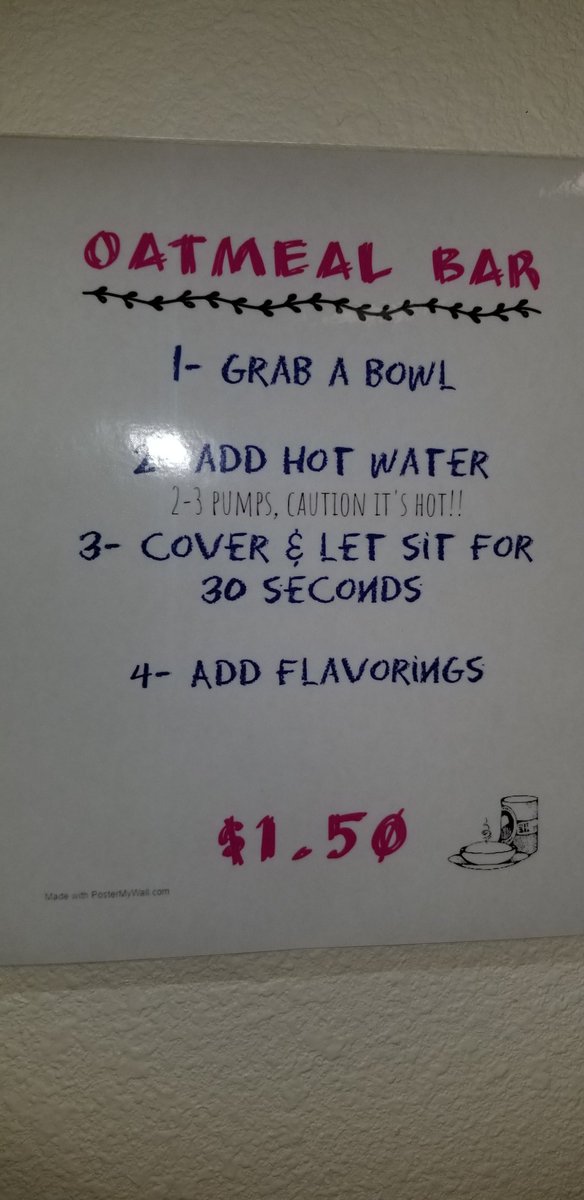 OATMEAL BAR
1- GRAB A BOWL
2- ADD HOT WATER
2-3 PUMPS, CAUTION IT'S HOT!!
3- COVER & LET SIT FOR
30 SECONDS
4- ADD FLAVORINGS
$1.50
Made with PosterMyWall.com